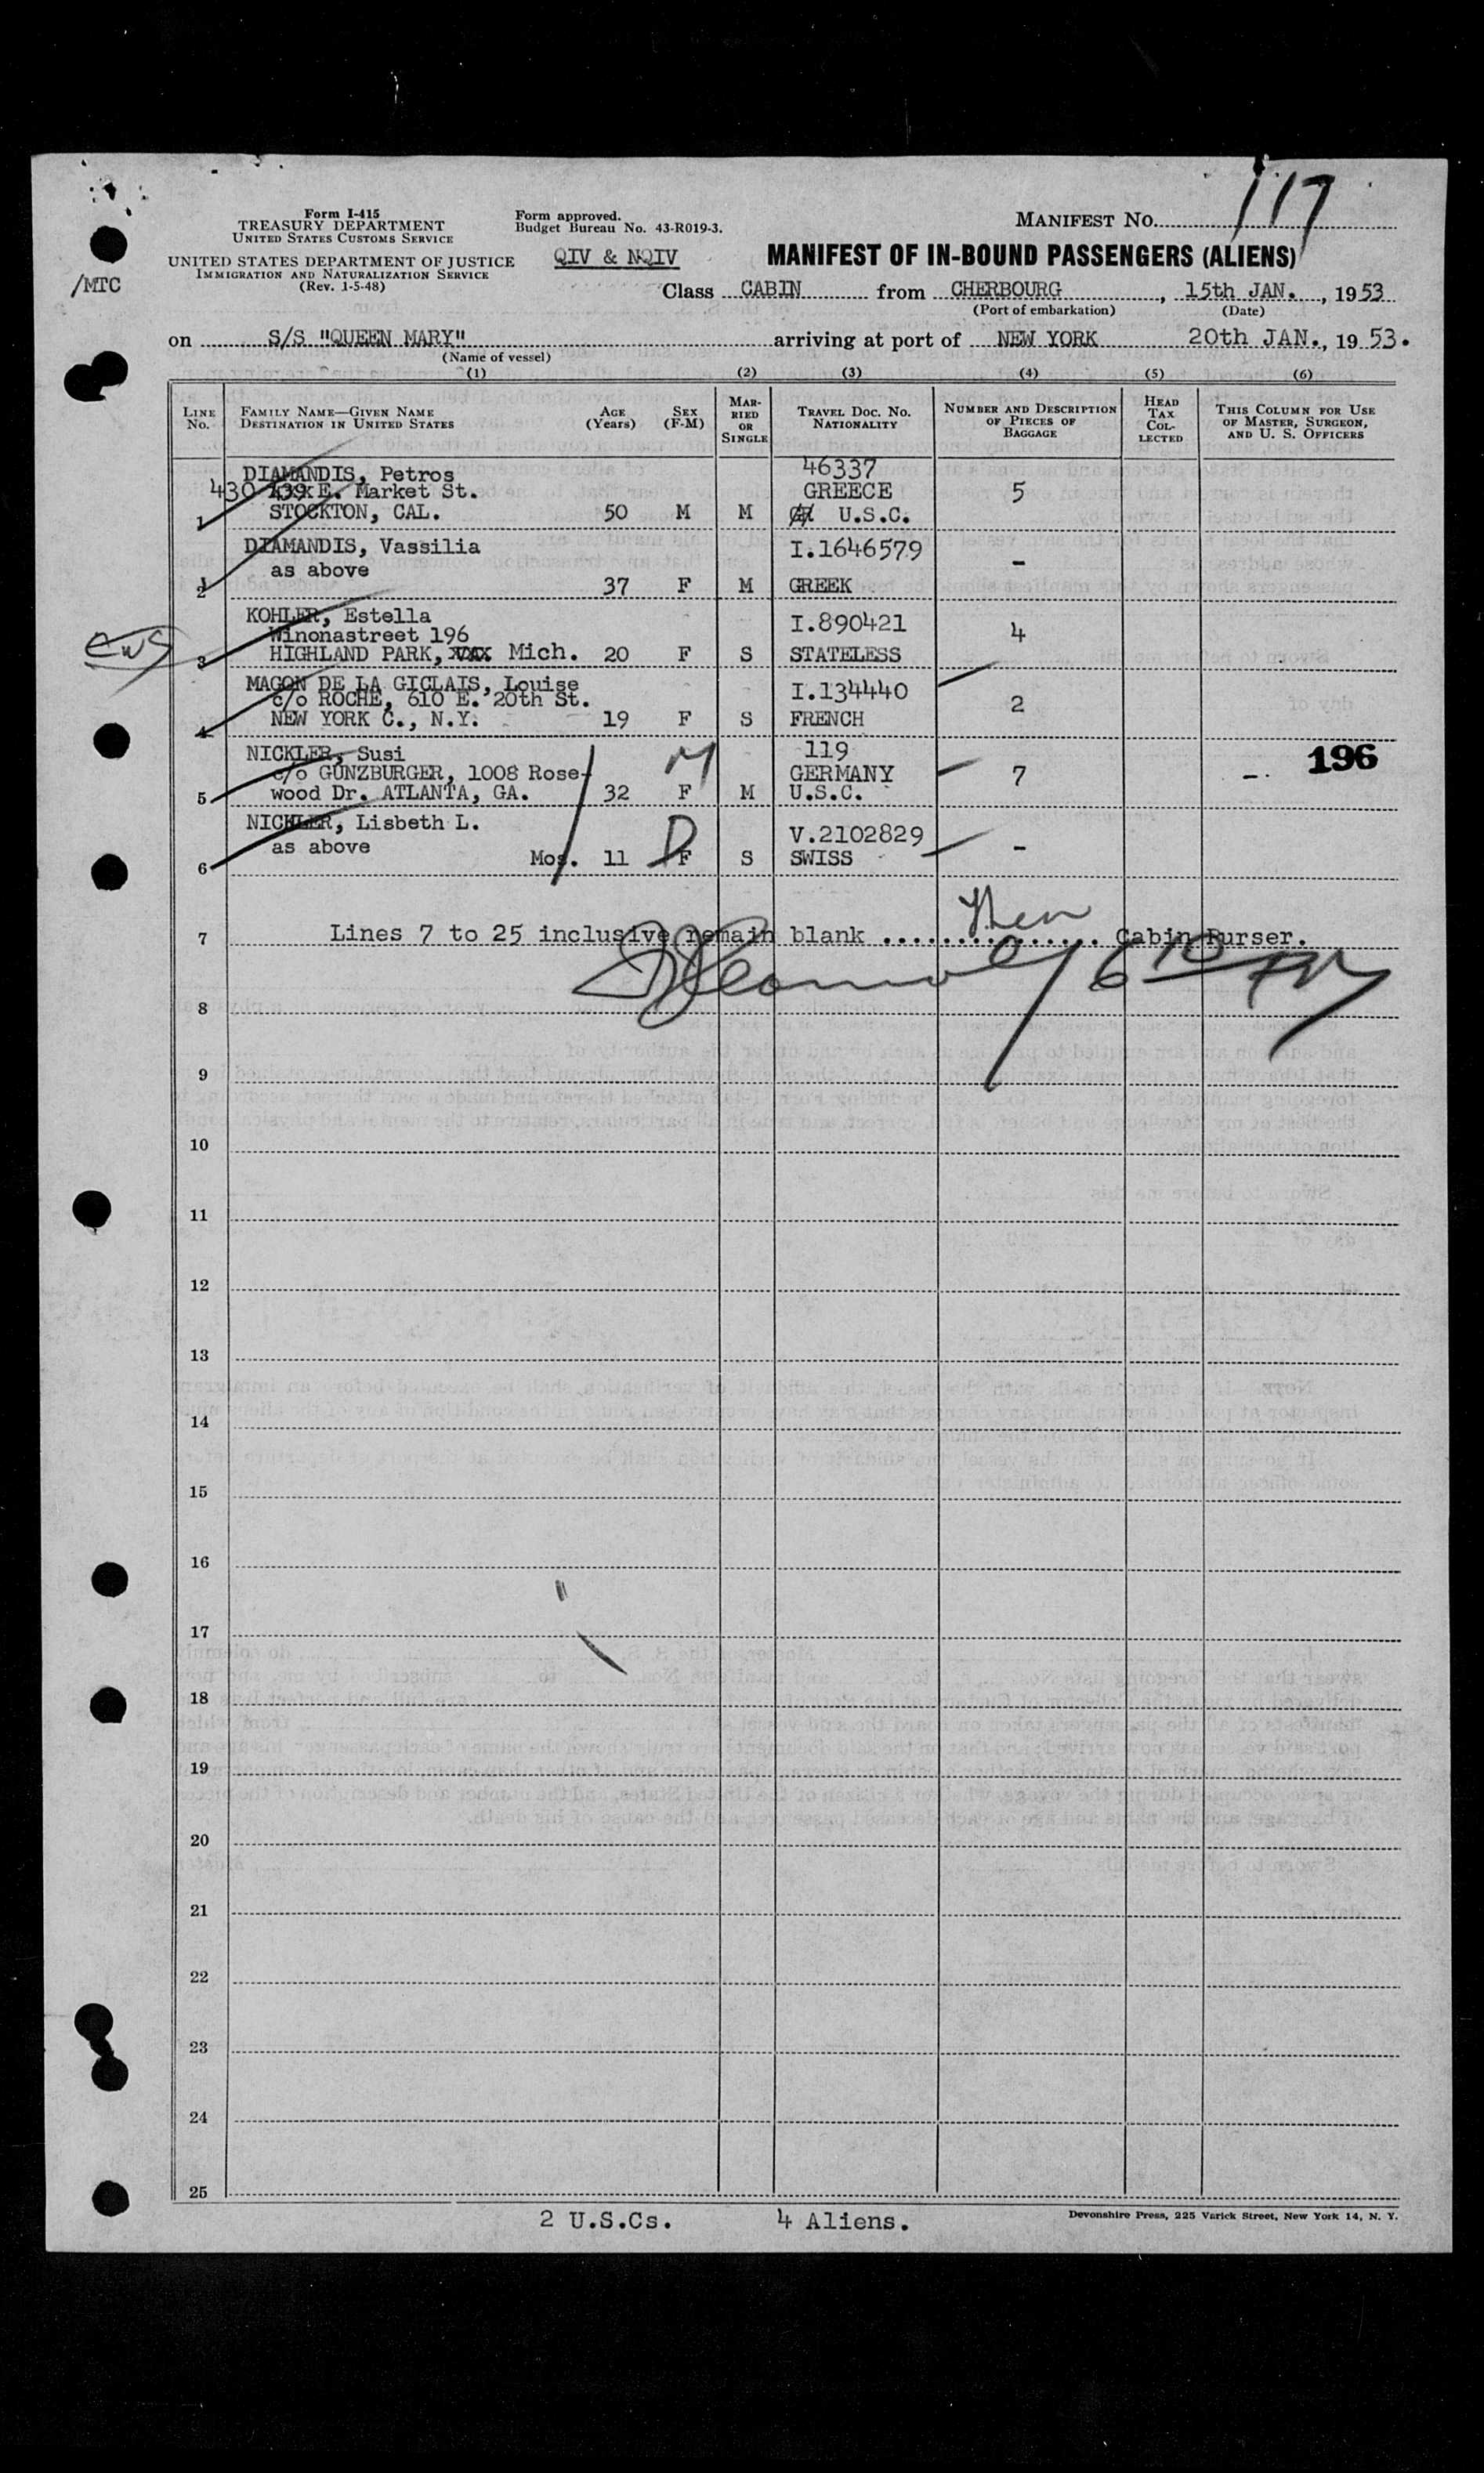 117
Form I-415
TREASURY DEPARTMENT
UNITED STATES CUSTOMS SERVICE
UNITED STATES DEPARTMENT OF JUSTICE
IMMIGRATION AND NATURALIZATION SERVICE
(Rev. 1-5-48)
/MTC
Form approved.
Budget Bureau No. 43-R019-3.
QIV & NQIV
MANIFEST NO.
MANIFEST OF IN-BOUND PASSENGERS (ALIENS)
Class CABIN from CHERBOURG, 15th JAN., 1953
(Port of embarkation) (Date)
on S/S "QUEEN MARY" arriving at port of NEW YORK 20th JAN., 1953.
(Name of vessel)
(1) (2) (3) (4) (5) (6)
LINE NO.
FAMILY NAME—GIVEN NAME
DESTINATION IN UNITED STATES
AGE (Years)
SEX (F-M)
MARRIED OR SINGLE
TRAVEL DOC. NO.
NATIONALITY
NUMBER AND DESCRIPTION OF PIECES OF BAGGAGE
HEAD TAX COLLECTED
THIS COLUMN FOR USE OF MASTER, SURGEON, AND U. S. OFFICERS
DIAMANDIS, Petros 46337
430 E. Market St. GREECE 5
1 STOCKTON, CAL. 50 M M U.S.C.
DIAMANDIS, Vassilia I.1646579
as above -
2 37 F M GREEK
KOHLER, Estella I.890421
Winonastreet 196 4
3 HIGHLAND PARK, Mich. 20 F S STATELESS
MAGON DE LA GICLAIS, Louise I.134440
c/o ROCHE, 610 E. 20th St. 2
4 NEW YORK C., N.Y. 19 F S FRENCH
NICKLER, Susi M 119 196
c/o GUNZBURGER, 1008 Rose- GERMANY 7 -.
5 wood Dr. ATLANTA, GA. 32 F M U.S.C.
NICKLER, Lisbeth L. D V.2102829
as above -
6 Mos. 11 F S SWISS
7 Lines 7 to 25 inclusive remain blank ............... Cabin Purser.
8
9
10
11
12
13
14
15
16
17
18
19
20
21
22
23
24
25
2 U.S.Cs. 4 Aliens.
Devonshire Press, 225 Varick Street, New York 14, N. Y.